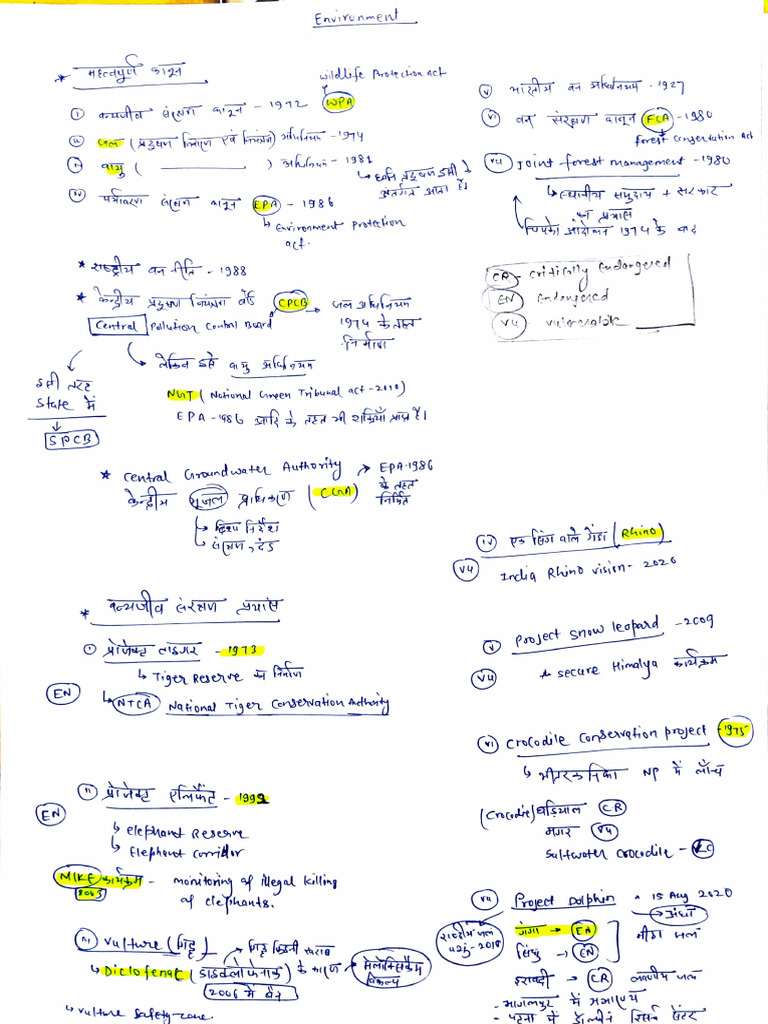 Environment
* महत्वपूर्ण कानून
Wildlife Protection act
① वन्यजीव संरक्षण कानून - 1972 WPA
② जल (प्रदूषण निवारण एवं नियंत्रण) अधिनियम - 1974
③ वायु ( ) अधिनियम - 1981
↳ ध्वनि प्रदूषण इसी के अंतर्गत आता है।
④ पर्यावरण संरक्षण कानून EPA - 1986
↳ Environment Protection act.
* राष्ट्रीय वन नीति - 1988
* केन्द्रीय प्रदूषण नियंत्रण बोर्ड CPCB → जल अधिनियम
Central Pollution Control Board
1974 के तहत
निर्माण
↳ लेकिन इसे वायु अधिनियम
NGT (National Green Tribunal act - 2010)
EPA - 1986 आदि के तहत भी शक्तियाँ प्राप्त हैं।
इसी तरह
State में
↳ SPCB
* Central Groundwater Authority → EPA-1986
केन्द्रीय भूजल प्राधिकरण (CGA) के तहत
निर्मित
↳ दिशा निर्देश
↳ संरक्षण, दंड
* वन्यजीव संरक्षण प्रयास
① प्रोजेक्ट टाइगर - 1973
↳ Tiger Reserve का निर्माण
EN
↳ NTCA National Tiger Conservation Authority
② प्रोजेक्ट एलिफेंट - 1992
EN
↳ elephant Reserve
↳ Elephant corridor
MIKE कार्यक्रम - monitoring of illegal killing
2003 of elephants.
Vulture (गिद्ध) → गिद्ध किडनी खराब
↳ Diclofenac (डाइक्लोफेनाक) के कारण → मेलोक्सिकैम विकल्प
2006 में बैन
↳ Vulture Safety zone
ⓥ भारतीय वन अधिनियम - 1927
ⓥⓘ वन संरक्षण कानून FCA - 1980
Forest Conservation Act
ⓥⓘⓘ Joint forest management - 1980
↳ स्थानीय समुदाय + सरकार
का प्रयास
चिपको आंदोलन 1974 के बाद
CR - critically Endangered
EN Endangered
VU - vulnerable
ⓘⓥ एक सिंग वाले गेंडा (Rhino)
VU
India Rhino vision - 2020
ⓥ Project snow leopard - 2009
VU
* secure Himalya कार्यक्रम
ⓥⓘ Crocodile Conservation project - 1975
↳ भीतरकनिका NP में लाँच
(Crocodile) घड़ियाल CR
मगर VU
Saltwater Crocodile - LC
Project Dolphin - 15 Aug 2020
राष्ट्रीय जल
गंगा → EN → अंधा
सिंधु → EN मीठा जल
इरावदी → CR लवणीय जल
- भागलपुर में अभ्यारण्य
- पटना में डॉल्फिन रिसर्च सेंटर